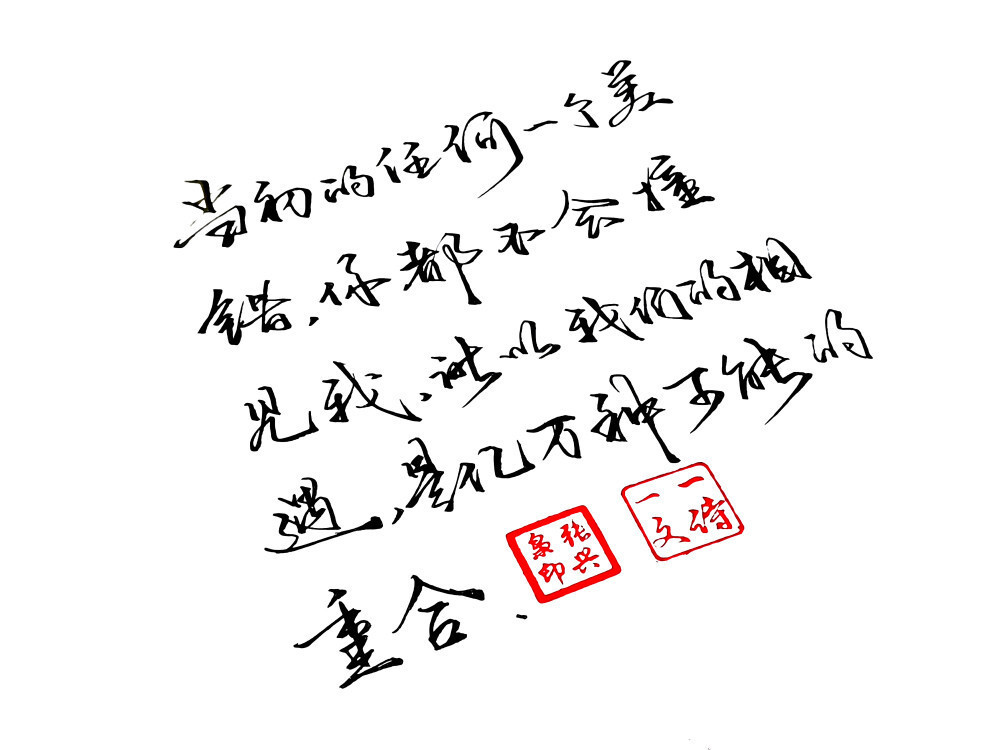 当初的任何一个差
错，你都不会撞
见我，所以我们的相
遇，是亿万种可能的
重合.
张兴
印
一诗
一文